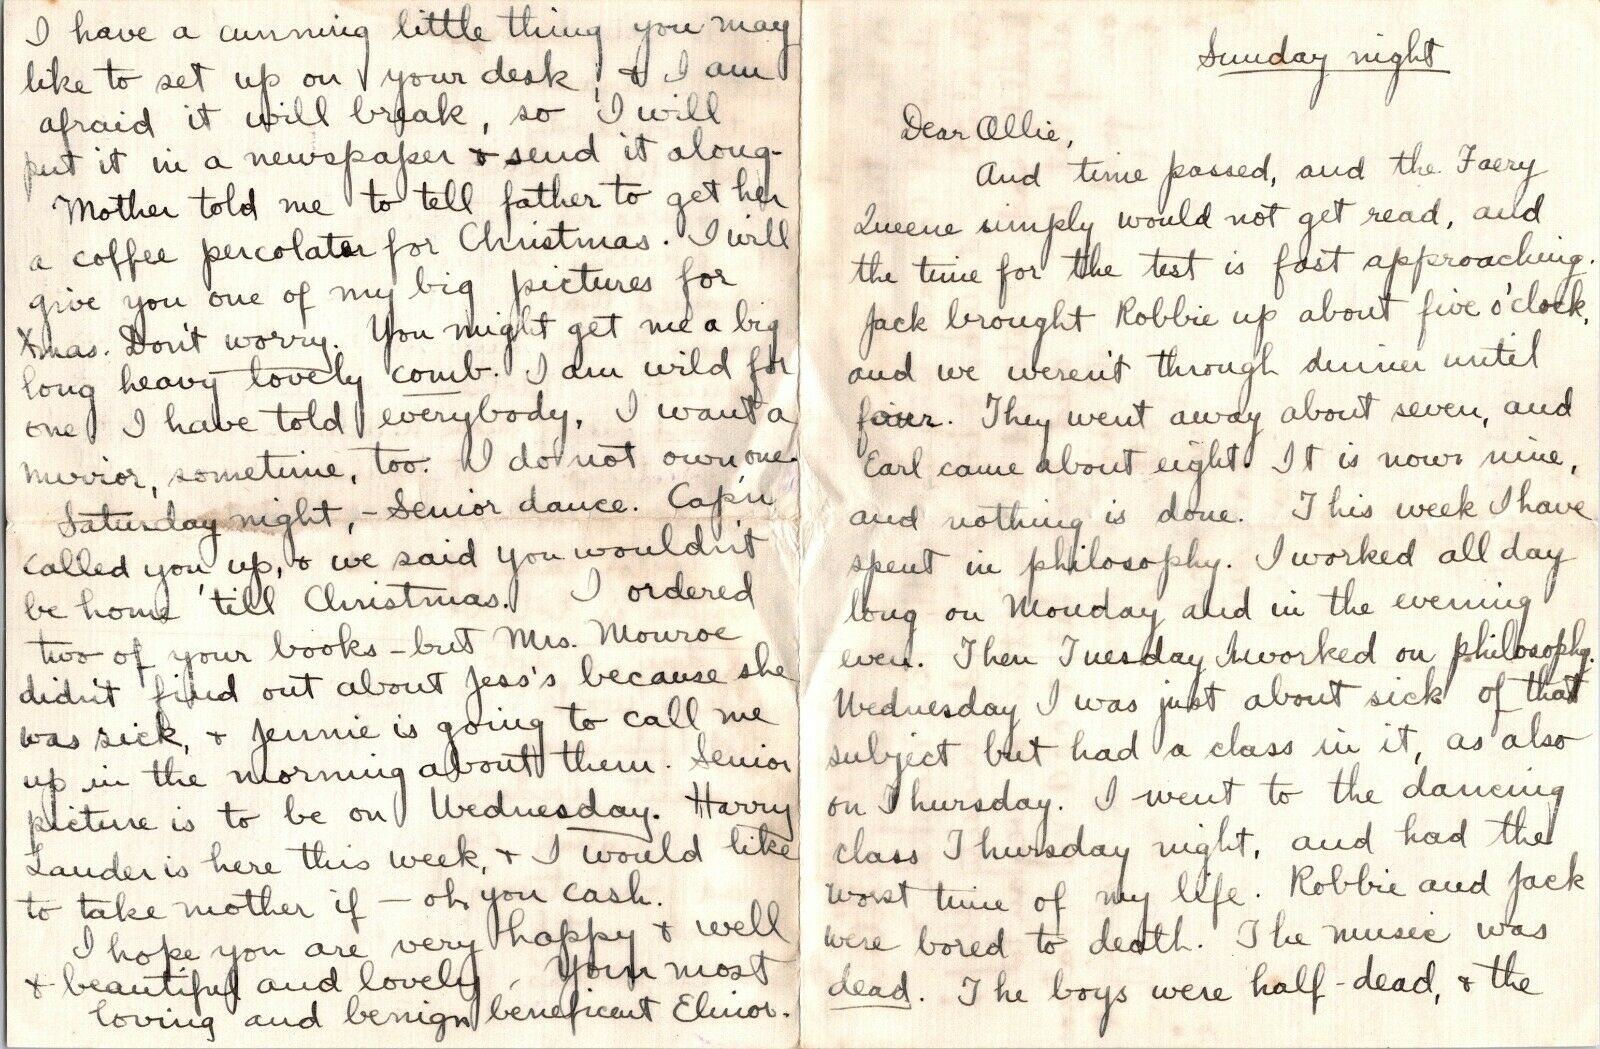 Sunday night
Dear Ollie,
And time passed, and the Faery
Queene simply would not get read, and
the time for the test is fast approaching.
Jack brought Robbie up about five o'clock,
and we weren't through dinner until
four. They went away about seven, and
Earl came about eight. It is now nine,
and nothing is done. This week I have
spent in philosophy. I worked all day
long on Monday and in the evening
even. Then Tuesday I worked on philosophy.
Wednesday I was just about sick of that
subject but had a class in it, as also
on Thursday. I went to the dancing
class Thursday night, and had the
worst time of my life. Robbie and Jack
were bored to death. The music was
dead. The boys were half-dead, & the
I have a cunning little thing you may
like to set up on your desk, & I am
afraid it will break, so I will
put it in a newspaper & send it along.
Mother told me to tell father to get her
a coffee percolator for Christmas. I will
give you one of my big pictures for
Xmas. Don't worry. You might get me a big
long heavy lovely comb. I am wild for
one I have told everybody, I want a
mirror, sometime, too. I do not own one.
Saturday night, - Senior dance. Cap'n
called you up, & we said you wouldn't
be home 'till Christmas. I ordered
two of your books - but Mrs. Monroe
didn't find out about Jess's because she
was sick, & Jennie is going to call me
up in the morning about them. Senior
picture is to be on Wednesday. Harry
Lauder is here this week, & I would like
to take mother if - oh, you cash.
I hope you are very happy & well
& beautiful and lovely. Your most
loving and benign beneficent Elinor.